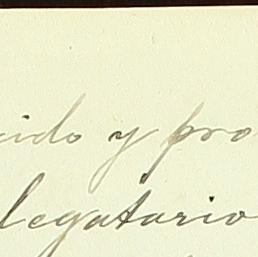 cido y pro
legatario